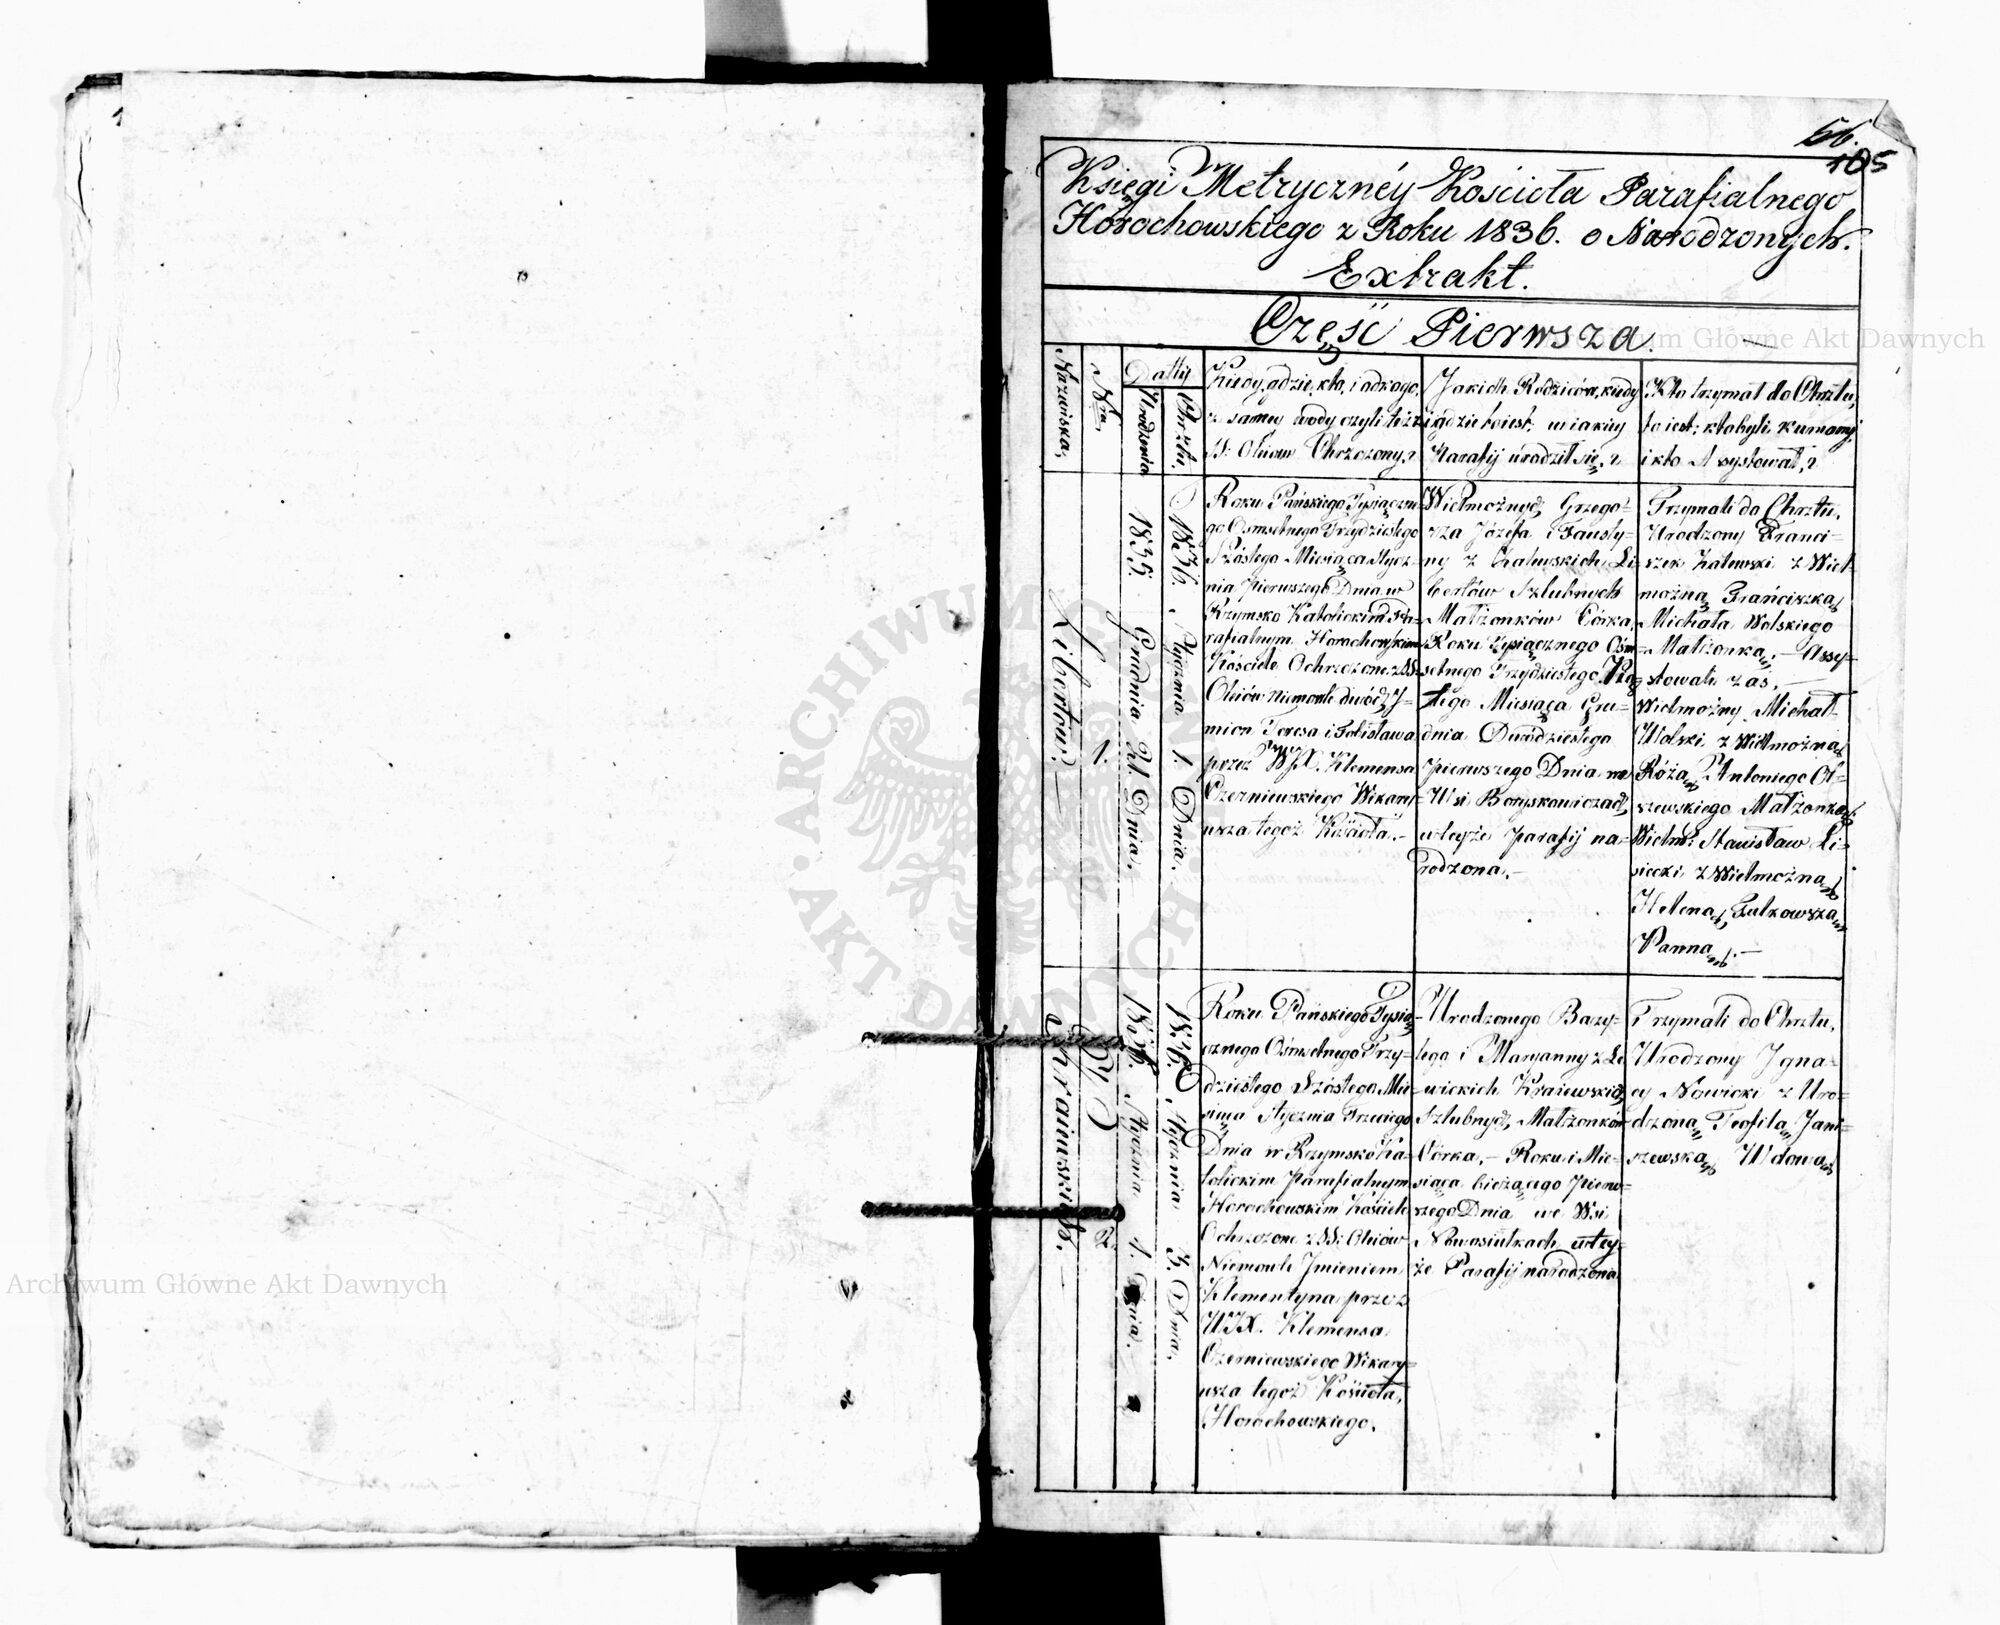 1
56.
105
Księgi Metrycznéy Kościoła Parafialnego
Horochowskiego z Roku 1836. o Narodzonych.
Extrakt.
Część Pierwsza.
Nazwiska,
Nra
Datty
Urodzenia
Chrztu,
Kiedy, gdzie, kto, i adkogo,
z samey wody czyli też z
SS: Oleiow Chrzczony,?
Jakich Rodziców, kiedy
i gdzie toiest: w iakiey
Parafij urodził się,?
Kto trzymał do Chrztu,
to iest; ktobyli Kumamy,
i kto Assystował,?
Libertów.
1.
1835. Grudnia 21. Dnia.
1836. Stycznia 1. Dnia.
Roku Pańskiego Tysiączne=
go Osmsetnego Trzydziestego
Szóstego Miesiąca Stycz=
nia pierwszego Dnia w
Rzymsko Katolickim Pa=
rafialnym Horochowskim
Kościele Ochrzczone z SS:
Oleiów Niemowle dwóch J=
mion Teresa i Felisława
przez WJX. Klemensa
Czerniewskiego Wikary=
usza tegoż Kościoła.-
Wielmożnych Grzego=
rza Józefa i Fausty=
ny z Zalewskich Li=
bertów Szlubnych
Małżonków Córka,
Roku Tysiącznego Osm=
setnego Trzydziestego Pią=
tego Miesiąca Gru=
dnia Dwudziestego
pierwszego Dnia we
Wsi Boryskowiczach,
w teyże parafij na=
rodzona.-
Trzymali do Chrztu,
Urodzony Franci=
szek Zalewski z Wiel=
możną Franciszką
Michała Wolskiego
Małżonką.- Assy=
stowali zas,-
Wielmożny Michał
Wolski z Wielmożną
Różą Antoniego Ol=
szewskiego Małżonką,
Wielm: Stanisław Li=
siecki z Wielmożną
Heleną Tutkowską
Panną.-
Kraiewskich.-
2.
1836. Stycznia 1. Dnia.
1836. Stycznia 3. Dnia,
Roku Pańskiego Tysią=
cznego Osmsetnego Trzy=
dziestego Szóstego Mie=
siąca Stycznia Trzeciego
Dnia w Rzymsko Ka=
tolickim Parafialnym
Horochowskim Kościele
Ochrzczone z SS: Oleiów
Niemowle Jmieniem
Klementyna przez
WJX. Klemensa
Czerniewskiego Wikary=
usza tegoż Kościoła,
Horochowskiego.
Urodzonego Bazy=
lego i Maryanny z Le=
wickich Kraiewskich,
Szlubnych Małżonków
Córka,- Roku i Mie=
siąca bieżącego pierw=
szego Dnia we Wsi
Nowosiułkach w tey=
że Parafij narodzona.
Trzymali do Chrztu,
Urodzony Jgna=
cy Nowicki z Uro=
dzoną Teofilą Jani=
szewską Wdową
Archiwum Główne Akt Dawnych
Archiwum Główne Akt Dawnych
· ARCHIWUM GŁÓWNE · AKT DAWNYCH